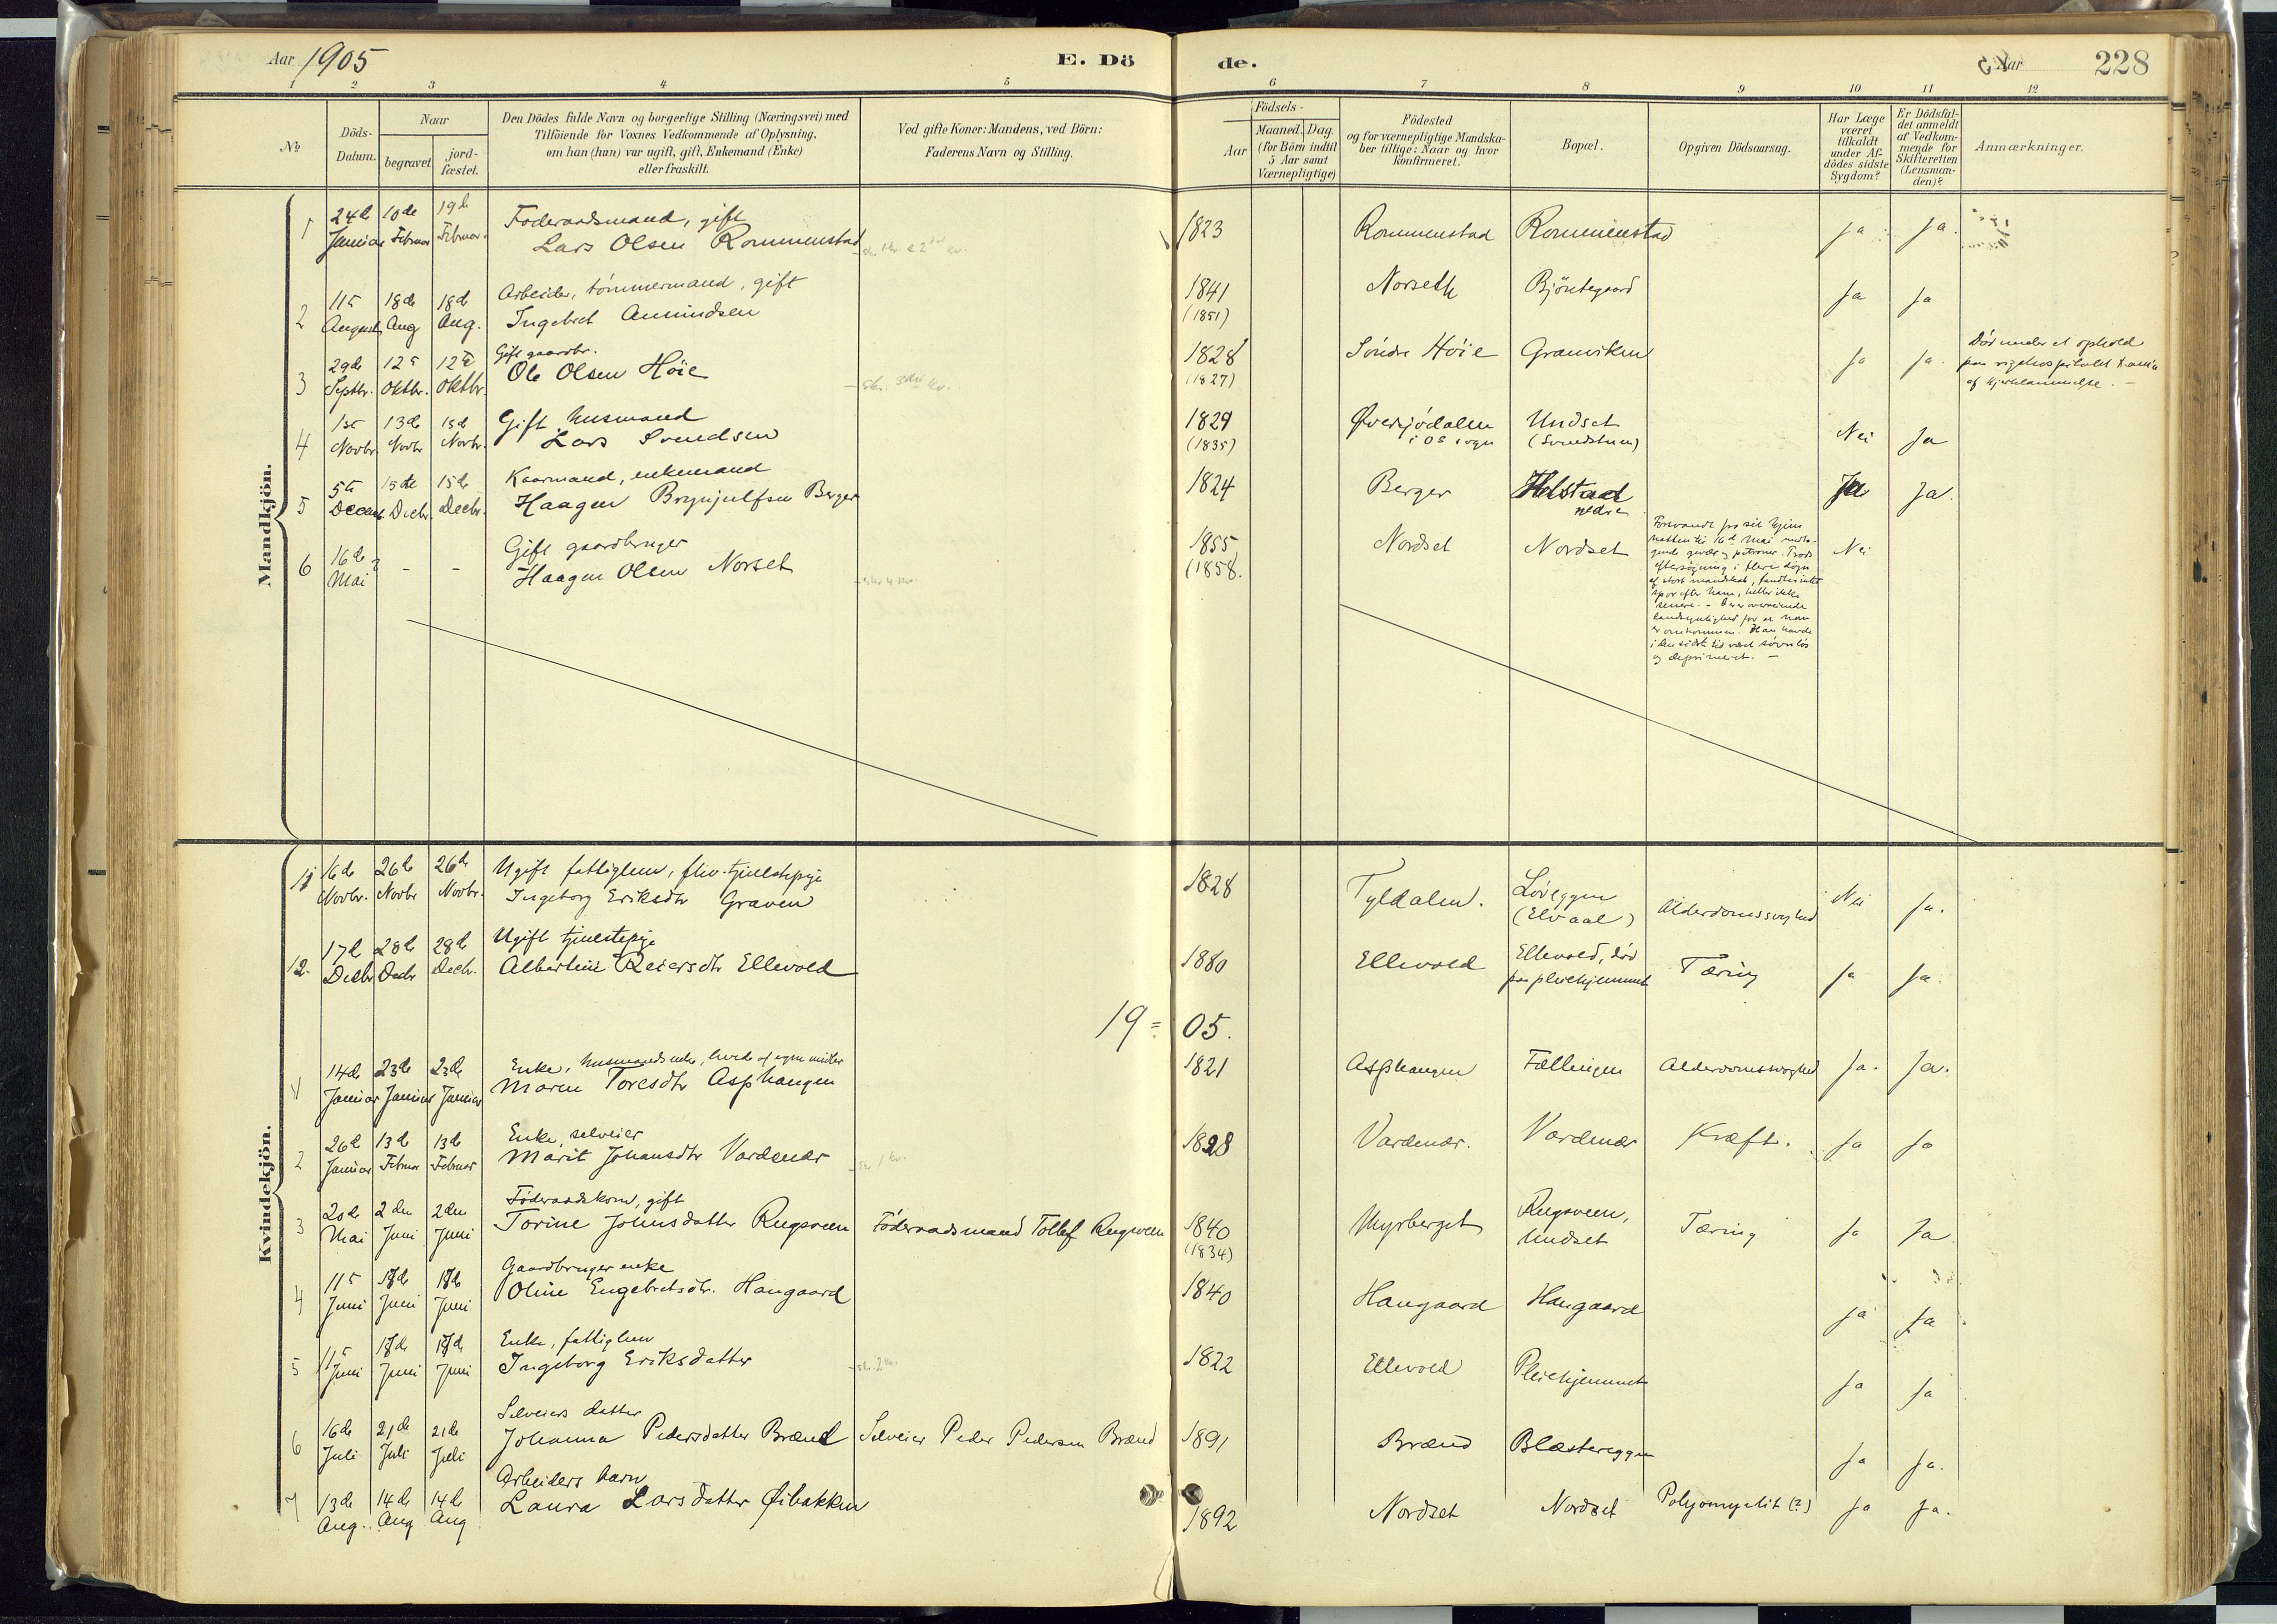 Aar 1905
E. Dö
de.
Aar
228
1 2 3 4 5 6 7 8 9 10 11 12
No
Döds-
Datum.
Naar
begravet
jord-
fæstet.
Den Dödes fulde Navn og borgerlige Stilling (Næringsvei) med
Tilföiende for Voxnes Vedkommende af Oplysning,
om han (hun) var ugift, gift, Enkemand (Enke)
eller fraskilt.
Ved gifte Koner: Mandens, ved Börn:
Faderens Navn og Stilling.
Födsels-
Aar
Maaned. Dag.
(for Börn indtil
5 Aar samt
Værnepligtige)
Födested
og for værnepligtige Mandska-
ber tillige: Naar og hvor
konfirmeret.
Bopæl.
Opgiven Dödsaarsag.
Har Læge
været
tilkaldt
under Af-
dödes sidste
Sygdom?
Er Dödsfal-
det anmeldt
af Vedkom-
mende for
Skifteretten
(Lensman-
den)?
Anmærkninger.
Mandkjön.
1 24de 10de 19de Foderaadsmand, gift
Januar Februar Februar. Lars Olsen Rommenstad 1823 Rommenstad Rommenstad ja ja.
2 11te 18de 18de Arbeider, tömmermand, gift
August Aug Aug. Ingebret Amundsen 1841 Norseth Bjöntegaard ja ja
(1851)
3 29de 12te 12te Gift gaardbr.
Septbr. Oktbr. Oktbr. Ole Olsen Höie 1828 Söndre Höie Granviken ja ja.
(1827)
Död under et ophold
paa rigshospitalet
af hjertelammelse. -
4 1ste 13de 13de Gift husmand
Novbr. Novbr Novbr. Lars Svendsen 1829 Øversjödalen Undset Nei Ja
(1835) i Os sogn
5 5te 15de 15de Kaarmand, enkemand
Decbr. Decbr. Haagen Brynjulfsen Berger 1824 Berger Holstad Ja Ja.
nedre
6 16de ? - - Gift gaardbruger
Mai Haagen Olsen Norset 1855 Nordset Nordset Nei
(1858.
Forsvandt fra sit hjem
natten til 16de Mai medta-
gende gevær og patroner. Trods
eftersögning i flere dögn
af stort mandskab, fandtes intet
spor efter ham, heller ikke
senere. - Der er overveiende
sandsynlighed for at han
er omkommen. Han havde
i den sidste tid været sövnlös
og deprimeret. -
Kvindekjön.
11 16de 26de 26de Ugift fattiglem, fhv. tjenestepige
Novbr. Novbr Novbr. Ingeborg Eriksdtr Graven 1828 Tyldalen. Löveggen Alderdomssvaghed Nei ja.
(Elvaal)
12. 17de 28de 28de Ugift tjenestepige
Decbr Decbr Decbr. Albertine Reiersdtr Ellevold 1880 Ellevold Ellevold, död Tæring ja ja.
paa pleiehjemmet
19 = 05.
1 14de 23de 23de Enke, husmandsenke, levede af egne midler
Januar Januar Januar Maren Toresdtr Asphaugen 1821 Asphaugen Fællingen Alderdomssvaghed Ja. Ja.
2 26de 13de 13de Enke, selveier
Januar Februar Februar Marit Johansdtr Vardenær 1828 Vardenær. Vardenær Kræft. ja ja
3 20de 2den 2den Föderaadskone, gift
Mai Juni Juni Torine Johnsdatter Rugsveen Föderaadsmand Tollef Rugsveen 1840 Myrberget Rugsveen, Tæring ja ja
(1834) Undset
4 11te 18de 18de Gaardbruger enke
Juni Juni Juni Oline Engebretsdtr. Haugaard 1840 Haugaard Haugaard ja ja
5 11te 18de 18de Enke, fattiglem
Juni Juni Juni Ingeborg Eriksdatter 1822 Ellevold Pleiehjemmet ja ja
6 16de 21de 21de Selveiers datter
Juli Juli Juli Johanna Pedersdatter Brænd Selveier Peder Pedersen Brænd 1891 Brænd Blæstereggen ja ja.
7 13de 14de 14de Arbeiders barn
Aug. Aug Aug Laura Larsdatter Øibakken 1892 Nordset Nordset Polyomyelit (?) ja ja.